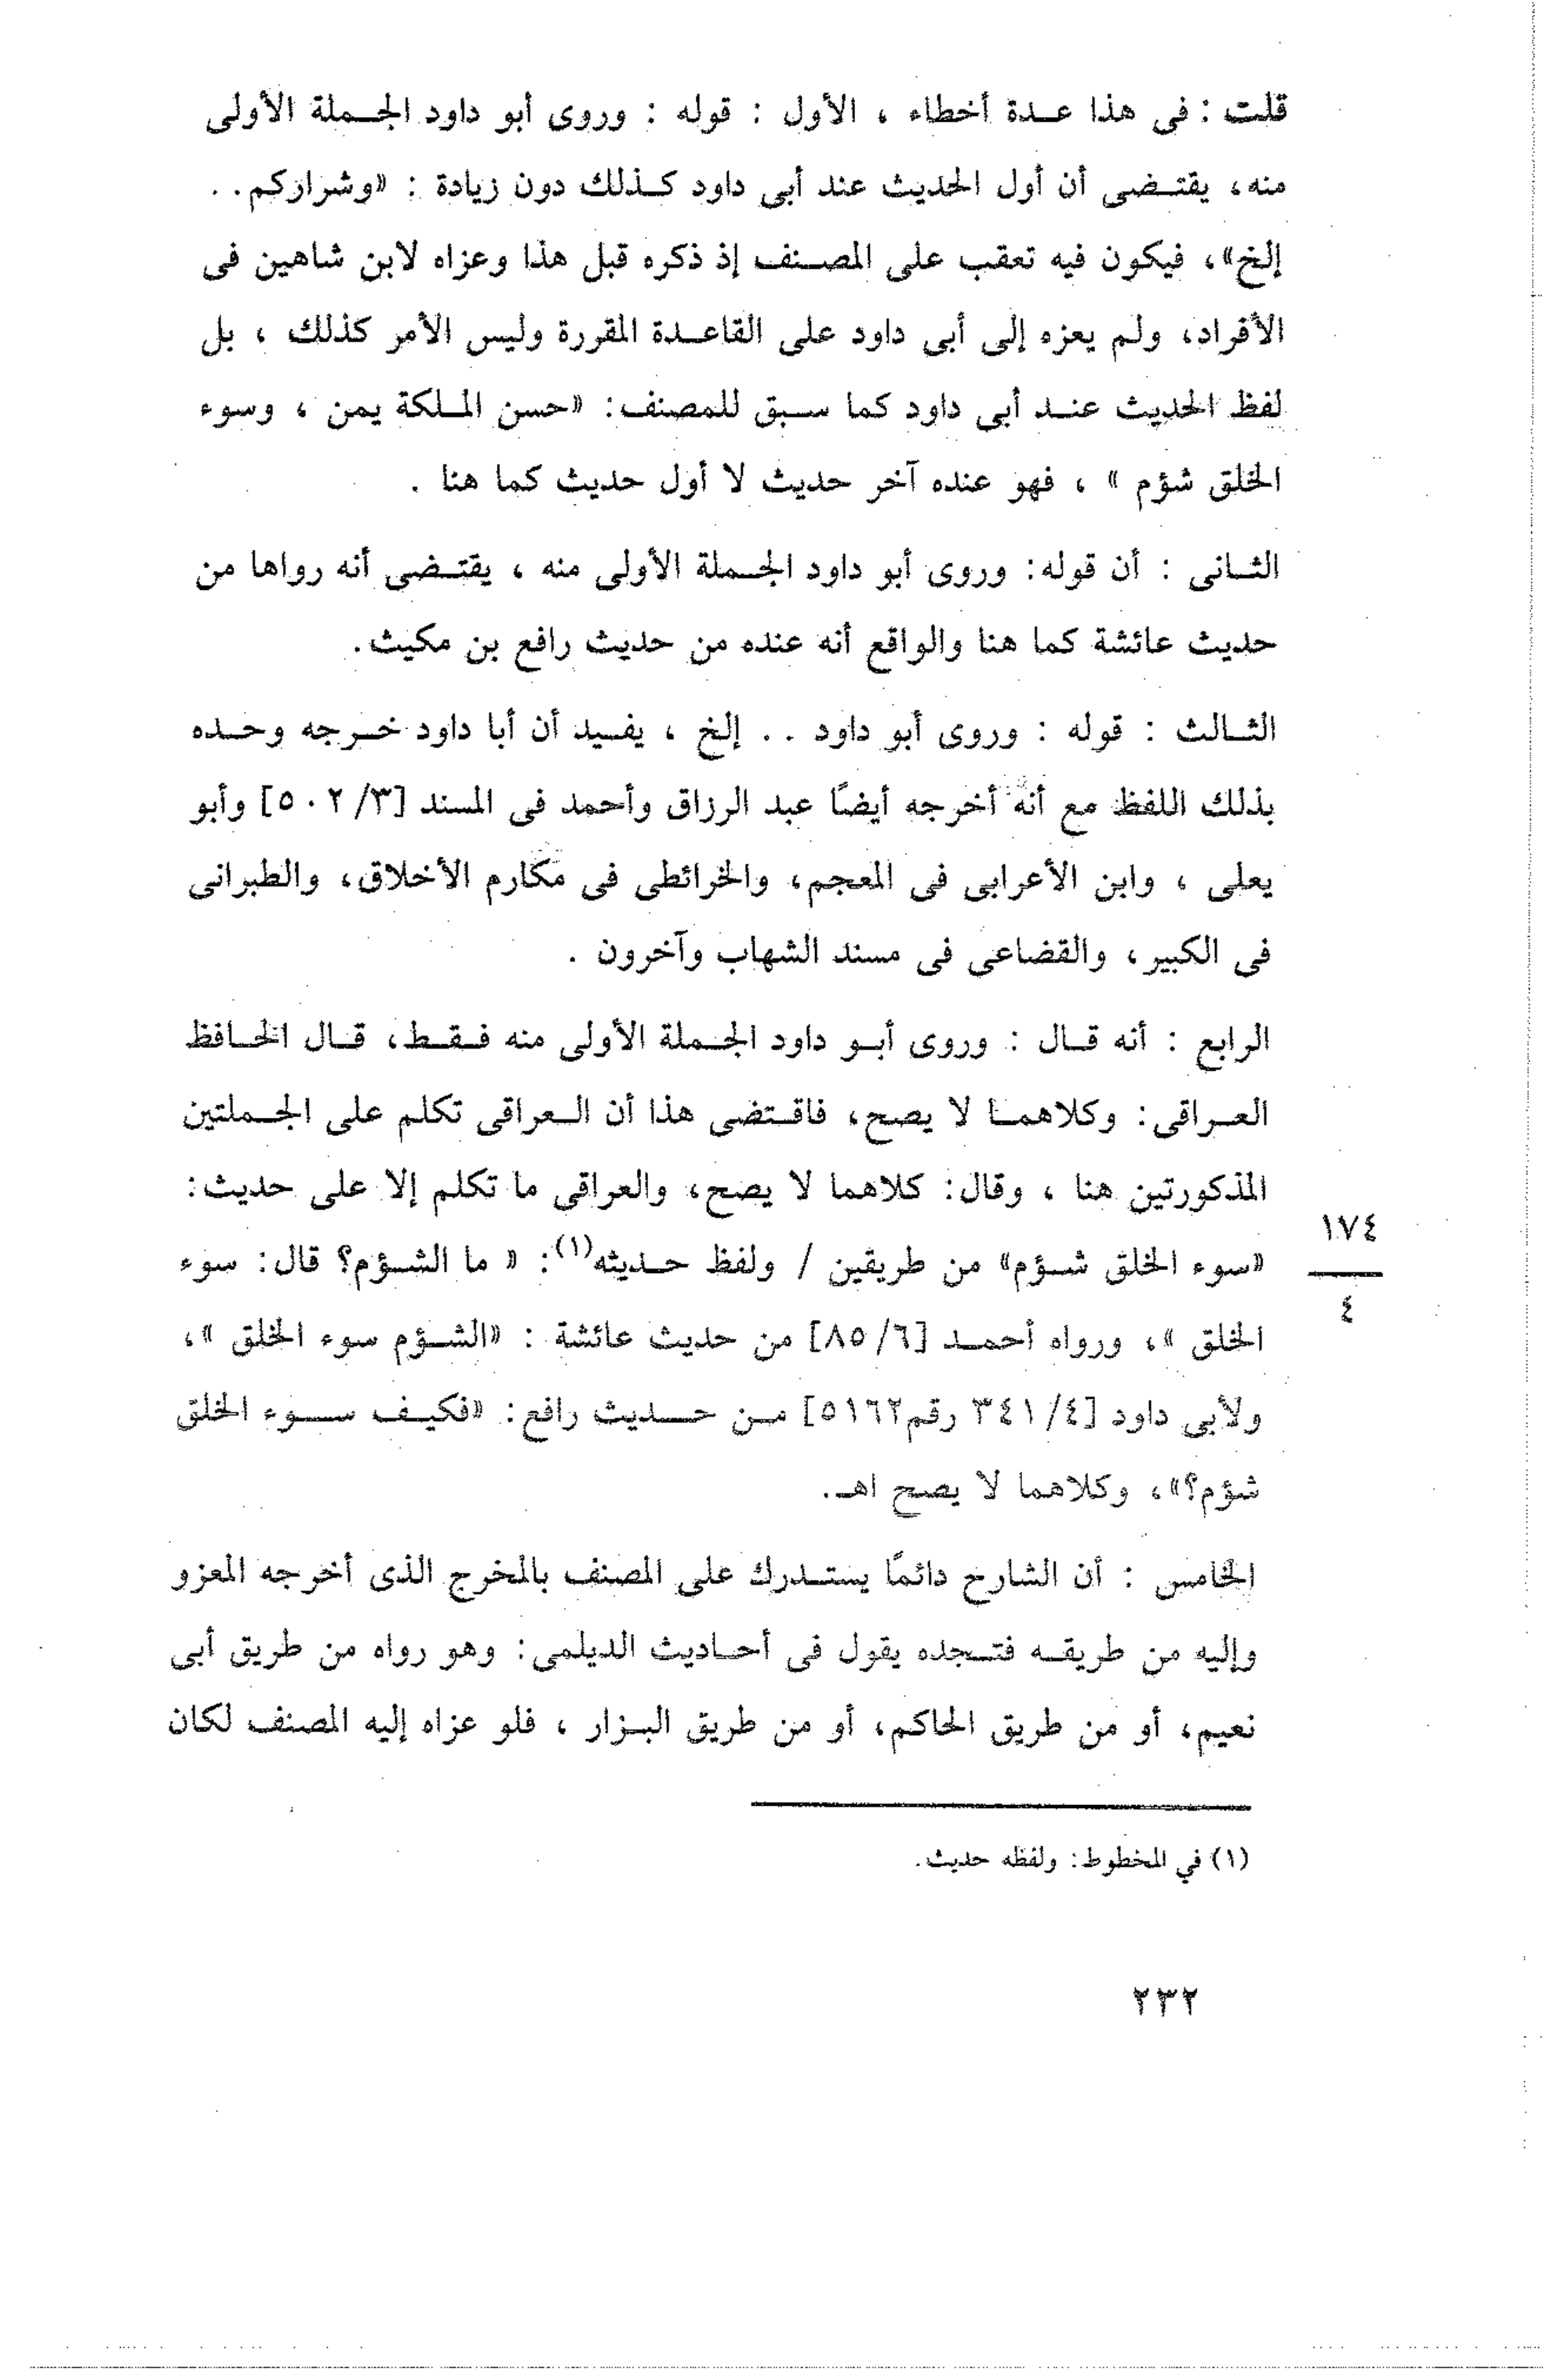 قلت : فى هذا عدة أخطاء ، الأول : قوله : وروى أبو داود الجملة الأولى
منه، يقتضى أن أول الحديث عند أبى داود كذلك دون زيادة : «وشراركم . .
إلخ»، فيكون فيه تعقب على المصنف إذ ذكره قبل هذا وعزاه لابن شاهين فى
الأفراد، ولم يعزه إلى أبى داود على القاعدة المقررة وليس الأمر كذلك ، بل
لفظ الحديث عند أبى داود كما سبق للمصنف: «حسن الملكة يمن ، وسوء
الخلق شؤم » ، فهو عنده آخر حديث لا أول حديث كما هنا .
الثانى : أن قوله: وروى أبو داود الجملة الأولى منه ، يقتضى أنه رواها من
حديث عائشة كما هنا والواقع أنه عنده من حديث رافع بن مكيث.
الثالث : قوله : وروى أبو داود . . إلخ ، يفيد أن أبا داود خرجه وحده
بذلك اللفظ مع أنه أخرجه أيضًا عبد الرزاق وأحمد فى المسند [٣/ ٥٠٢] وأبو
يعلى ، وابن الأعرابى فى المعجم، والخرائطى فى مكارم الأخلاق، والطبرانى
فى الكبير، والقضاعى فى مسند الشهاب وآخرون .
الرابع : أنه قال : وروى أبو داود الجملة الأولى منه فقط، قال الحافظ
العراقى: وكلاهما لا يصح، فاقتضى هذا أن العراقى تكلم على الجملتين
المذكورتين هنا ، وقال: كلاهما لا يصح، والعراقى ما تكلم إلا على حديث:
١٧٤
٤
«سوء الخلق شؤم» من طريقين / ولفظ حديثه(١): « ما الشؤم؟ قال: سوء
الخلق »، ورواه أحمد [٦/ ٨٥] من حديث عائشة : «الشؤم سوء الخلق »،
ولأبى داود [٤/ ٣٤١ رقم ٥١٦٢] من حديث رافع: «فكيف سوء الخلق
شؤم؟»، وكلاهما لا يصح اهـ.
الخامس : أن الشارح دائمًا يستدرك على المصنف بالمخرج الذى أخرجه المعزو
وإليه من طريقه فتجده يقول فى أحاديث الديلمى: وهو رواه من طريق أبى
نعيم، أو من طريق الحاكم، أو من طريق البزار ، فلو عزاه إليه المصنف لكان
(١) في المخطوط: ولفظه حديث.
٢٣٢